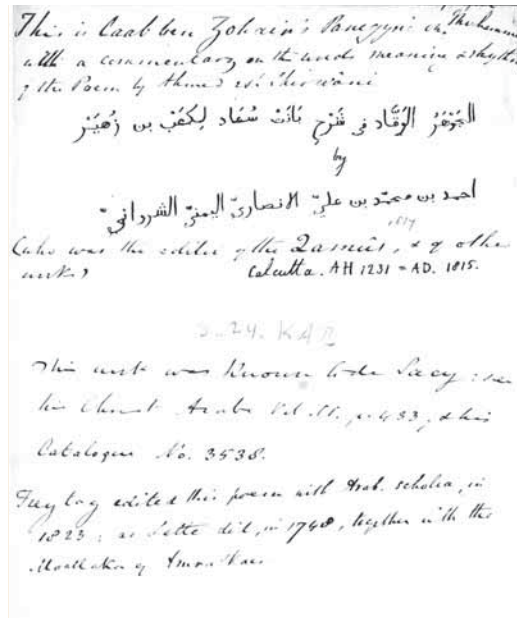 This is Caab ben Zohair's Panegyric on Muhamm
with a commentary on the words meaning & rhythm
of the Poem by Ahmed esh Shirwâni
الجوهر الوقّاد فى شرح بانت سعاد لكعب بن زهير
by
احمد بن محمّد بن عليّ الانصاريّ اليمنيّ الشرواني
(who was the editor of the Qamûs, & of other
works)
1817
Calcutta. AH 1231 = AD. 1815.
2.24. KAB
This work was known to de Sacy: see
his Chrest. Arabe Vol. II., p. 433, & his
Catalogue No. 3538.
Freytag edited this poem with Arab. scholia, in
1823; as Lette did, in 1748, together with the
Moallaka of Amru'lkais